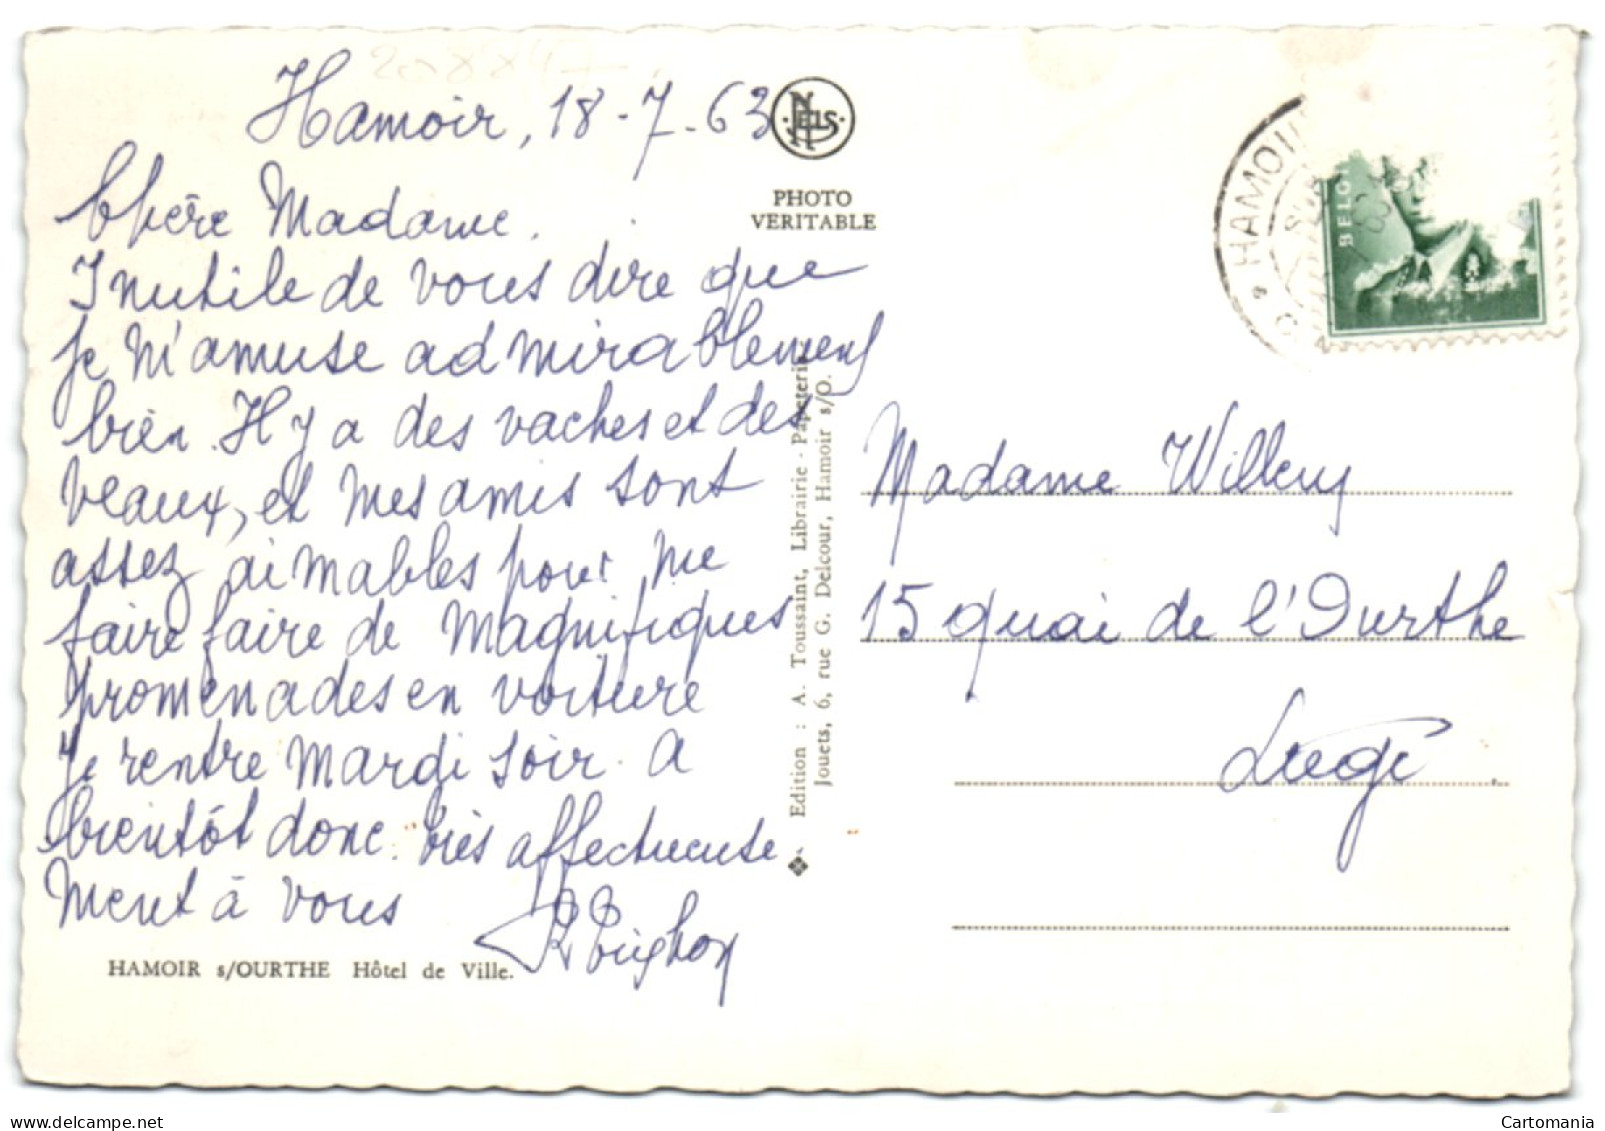 Hamoir, 18-7-63
Chère Madame,
Inutile de vous dire que
je m'amuse admirablement
bien. Il y a des vaches et des
veaux, et mes amis sont
assez aimables pour me
faire faire de magnifiques
promenades en voiture
Je rentre mardi soir. A
bientôt donc. Très affectueuse
ment à vous
HAMOIR s/OURTHE Hôtel de Ville.
NELS
PHOTO
VERITABLE
Edition : A. Toussaint, Librairie - Papeterie
Jouets, 6, rue G. Delcour, Hamoir s/O.
HAMOIR
BELGI
Madame
15 quai de l'Ourthe
Liège
Cartomania
www.delcampe.net